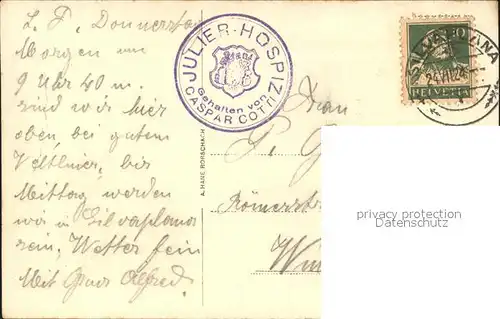 L. F. Donnerstag
Morgen um
9 Uhr 40 m.
sind wir hier
oben, bei gutem
Veltliner, bis
Mittag werden
wir in Silvaplana
sein, Wetter fein
Mit Gruss Alfred.
JULIER-HOSPIZ
Gehalten von
CASPAR COTTI
A. HANE RORSCHACH
SILVAPLANA
24.
HELVETIA
Frau
Römerstr
privacy protection
watermarks